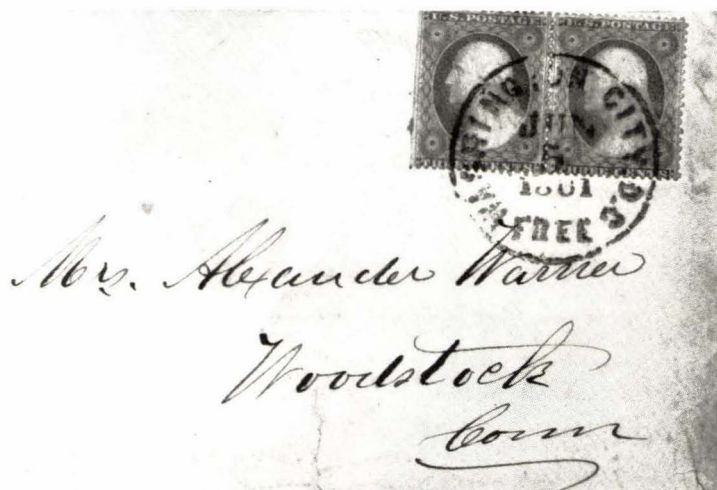 U.S. POSTAGE U.S. POSTAGE
WASHINGTON CITY D.C.
1861
FREE
Mrs. Alexander Warner
Woodstock
Conn